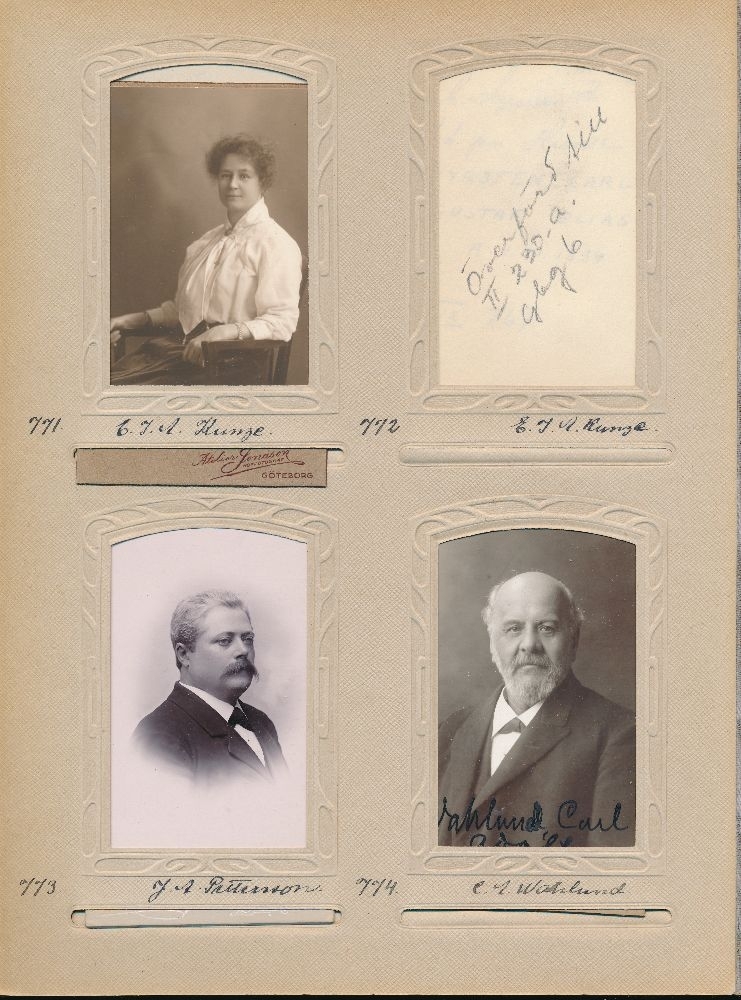 Överförd till
II 230. a.
Gbg 6
771 E. J. A. Kunze.
772 E. J. A. Kunze.
Atelier Jonason
GÖTEBORG
Wahlund Carl
773 J A Pettersson.
774. C. A. Wahlund